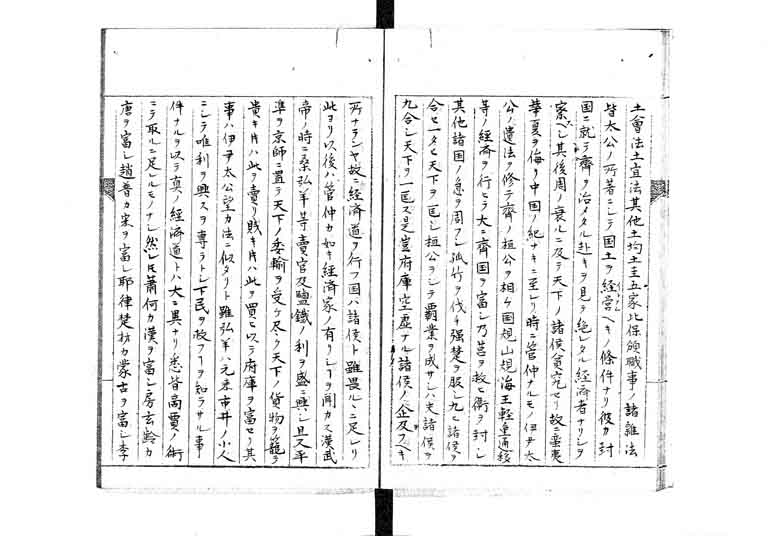 土會法土宜法其他土均土圭五家比保餉職事ノ諸雑法
皆太公ノ所著ニシテ国土ヲ経営スヘキノ條件ナリ彼カ封
国ニ就テ齊ヲ治メタル赴キヲ見テ絶レタル経済者ナリシヲ
察スベシ其後周ノ衰ルニ及テ天下ノ諸侯貧究セリ故ニ蛮夷
華夏ヲ侮リ中国ノ紀ナキニ至レリ時ニ管仲ナルモノ伊尹太
公ノ遺法ヲ修テ齊ノ桓公ヲ相ケ国規山規海王軽重通移
等ノ経済ヲ行ヒテ大ニ齊国ヲ富シ乃莒ヲ救ヒ衛ヲ封シ
其他諸国ノ急ヲ周フシ孤竹ヲ伐チ强楚ヲ服シ九ヒ諸侯ヲ
合セ一タヒ天下ヲ匡シ桓公ヲシテ覇業ヲ成サシム夫諸侯ヲ
九合シ天下ヲ一匡ス是豈府庫空虚ナル諸侯ノ企及フヘキ
所ナランヤ故ニ経済道ヲ行フ国ハ諸侯ト雖畏ルヽニ足レリ
此ヨリ以後ハ管仲カ如キ経済家ノ有リシヿヲ聞カス漢武
帝ノ時ニ桑弘羊等賣官及鹽鐵ノ利ヲ盛ニ興シ且又平
準ヲ京師ニ置テ天下ノ委輸ヲ受ケ尽ク天下ノ貨物ヲ籠テ
貴キ片ハ此ヲ賣リ賎キ片ハ此ヲ買ヒ以テ府庫ヲ富セリ其
事ハ伊尹太公望カ法ニ似タリト雖弘羊ハ元来市井ノ小人
ニシテ唯利ヲ興スヲ専ラトシ下民ヲ救フヿヲ知ラサル事
件ナルヲ以テ真ノ経済道トハ大ニ異ナリ悉皆商賈ノ術
ニテ取ルニ足レルモノナシ然レ𪜈蕭何カ漢ヲ富シ房玄齢カ
唐ヲ富シ趙普カ宋ヲ富シ耶律楚材カ蒙古ヲ富シ李